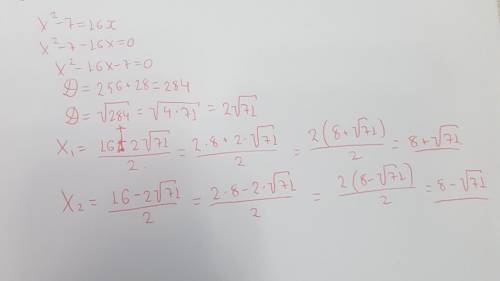 x²-7=16x
x²-7-16x=0
x²-16x-7=0
D=256+28=284
D=√284=√4·71=2√71
x₁=(16+2√71)/2=(2·8+2·√71)/2=2(8+√71)/2=8+√71
x₂=(16-2√71)/2=(2·8-2·√71)/2=2(8-√71)/2=8-√71